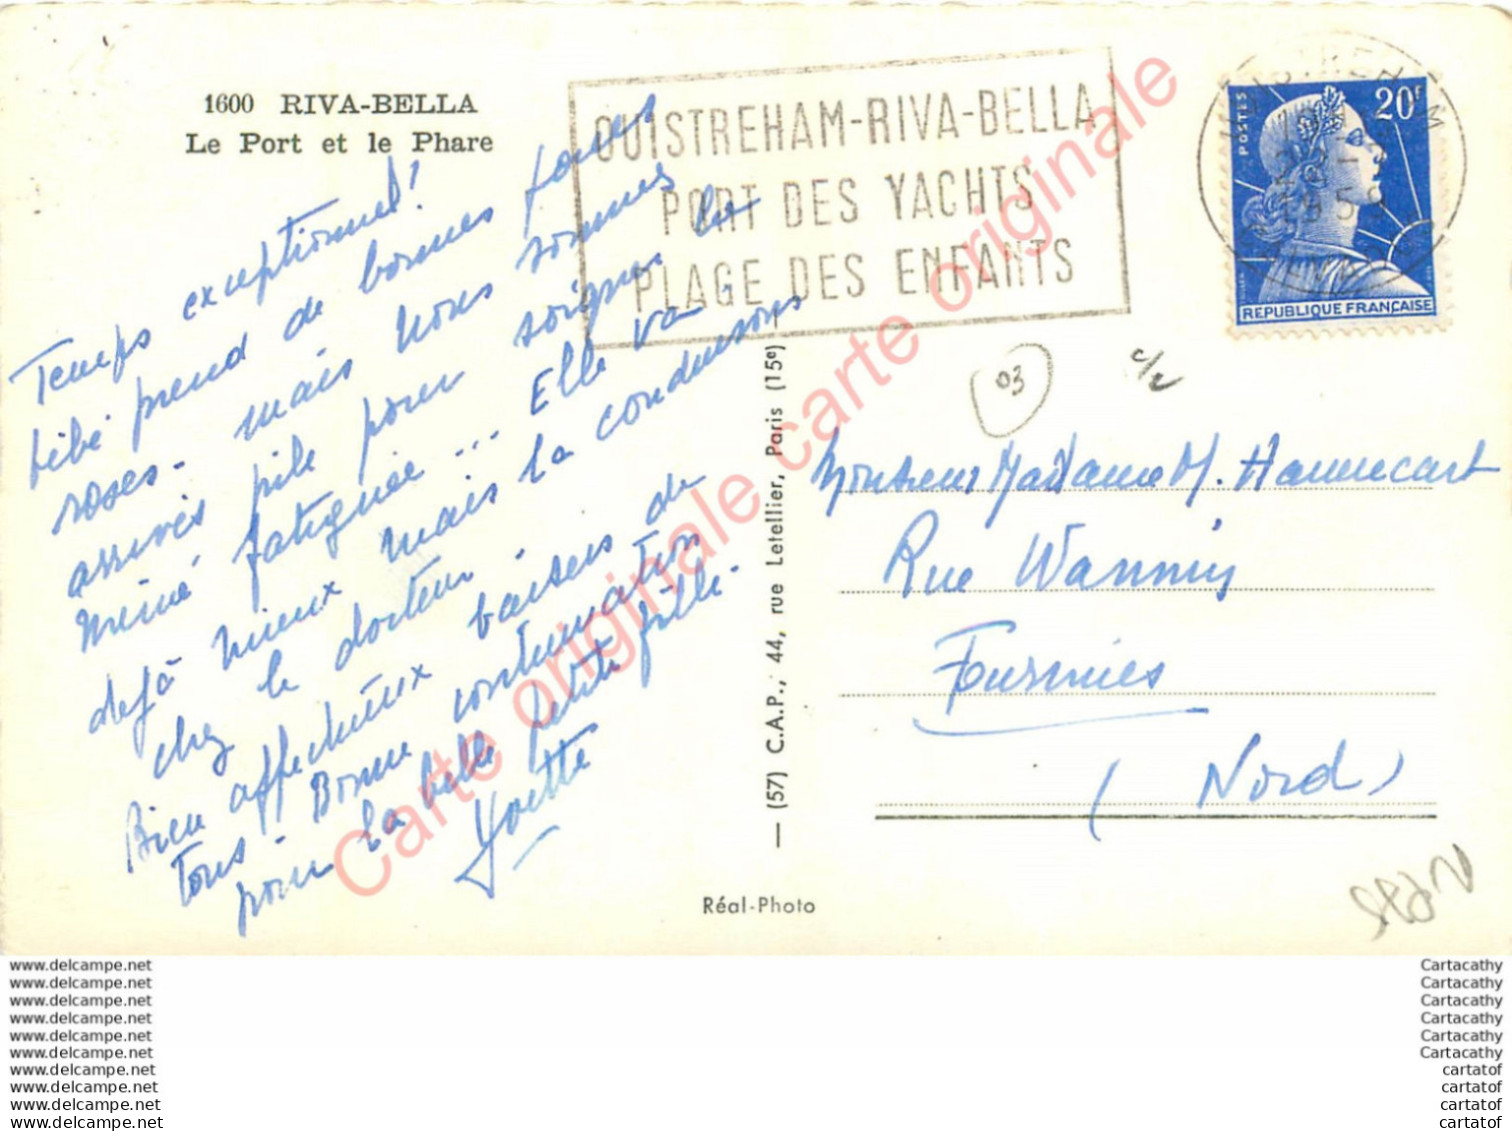 1600 RIVA-BELLA
Le Port et le Phare
OUISTREHAM-RIVA-BELLA
PORT DES YACHTS
PLAGE DES ENFANTS
POSTES
20F
REPUBLIQUE FRANÇAISE
Temps exceptionnel!
bébé prend de bonnes joues
roses - mais nous sommes
arrivés pile pour soigner la
mémé fatiguée... Elle va
dejà mieux mais la conduisons
chez le docteur.
Bien affectueux baisers de
tous - Bonne continuation
pour la belle petite fille.
Yvette
03
Monsieur Madame M. Hannecart
Rue Wannin
Fourmies
(Nord)
— (57) C.A.P., 44, rue Letellier, Paris (15e)
Réal-Photo
Carte originale carte originale
www.delcampe.net
www.delcampe.net
www.delcampe.net
www.delcampe.net
www.delcampe.net
www.delcampe.net
www.delcampe.net
www.delcampe.net
www.delcampe.net
www.delcampe.net
Cartacathy
Cartacathy
Cartacathy
Cartacathy
Cartacathy
Cartacathy
cartatof
cartatof
cartatof
cartatof